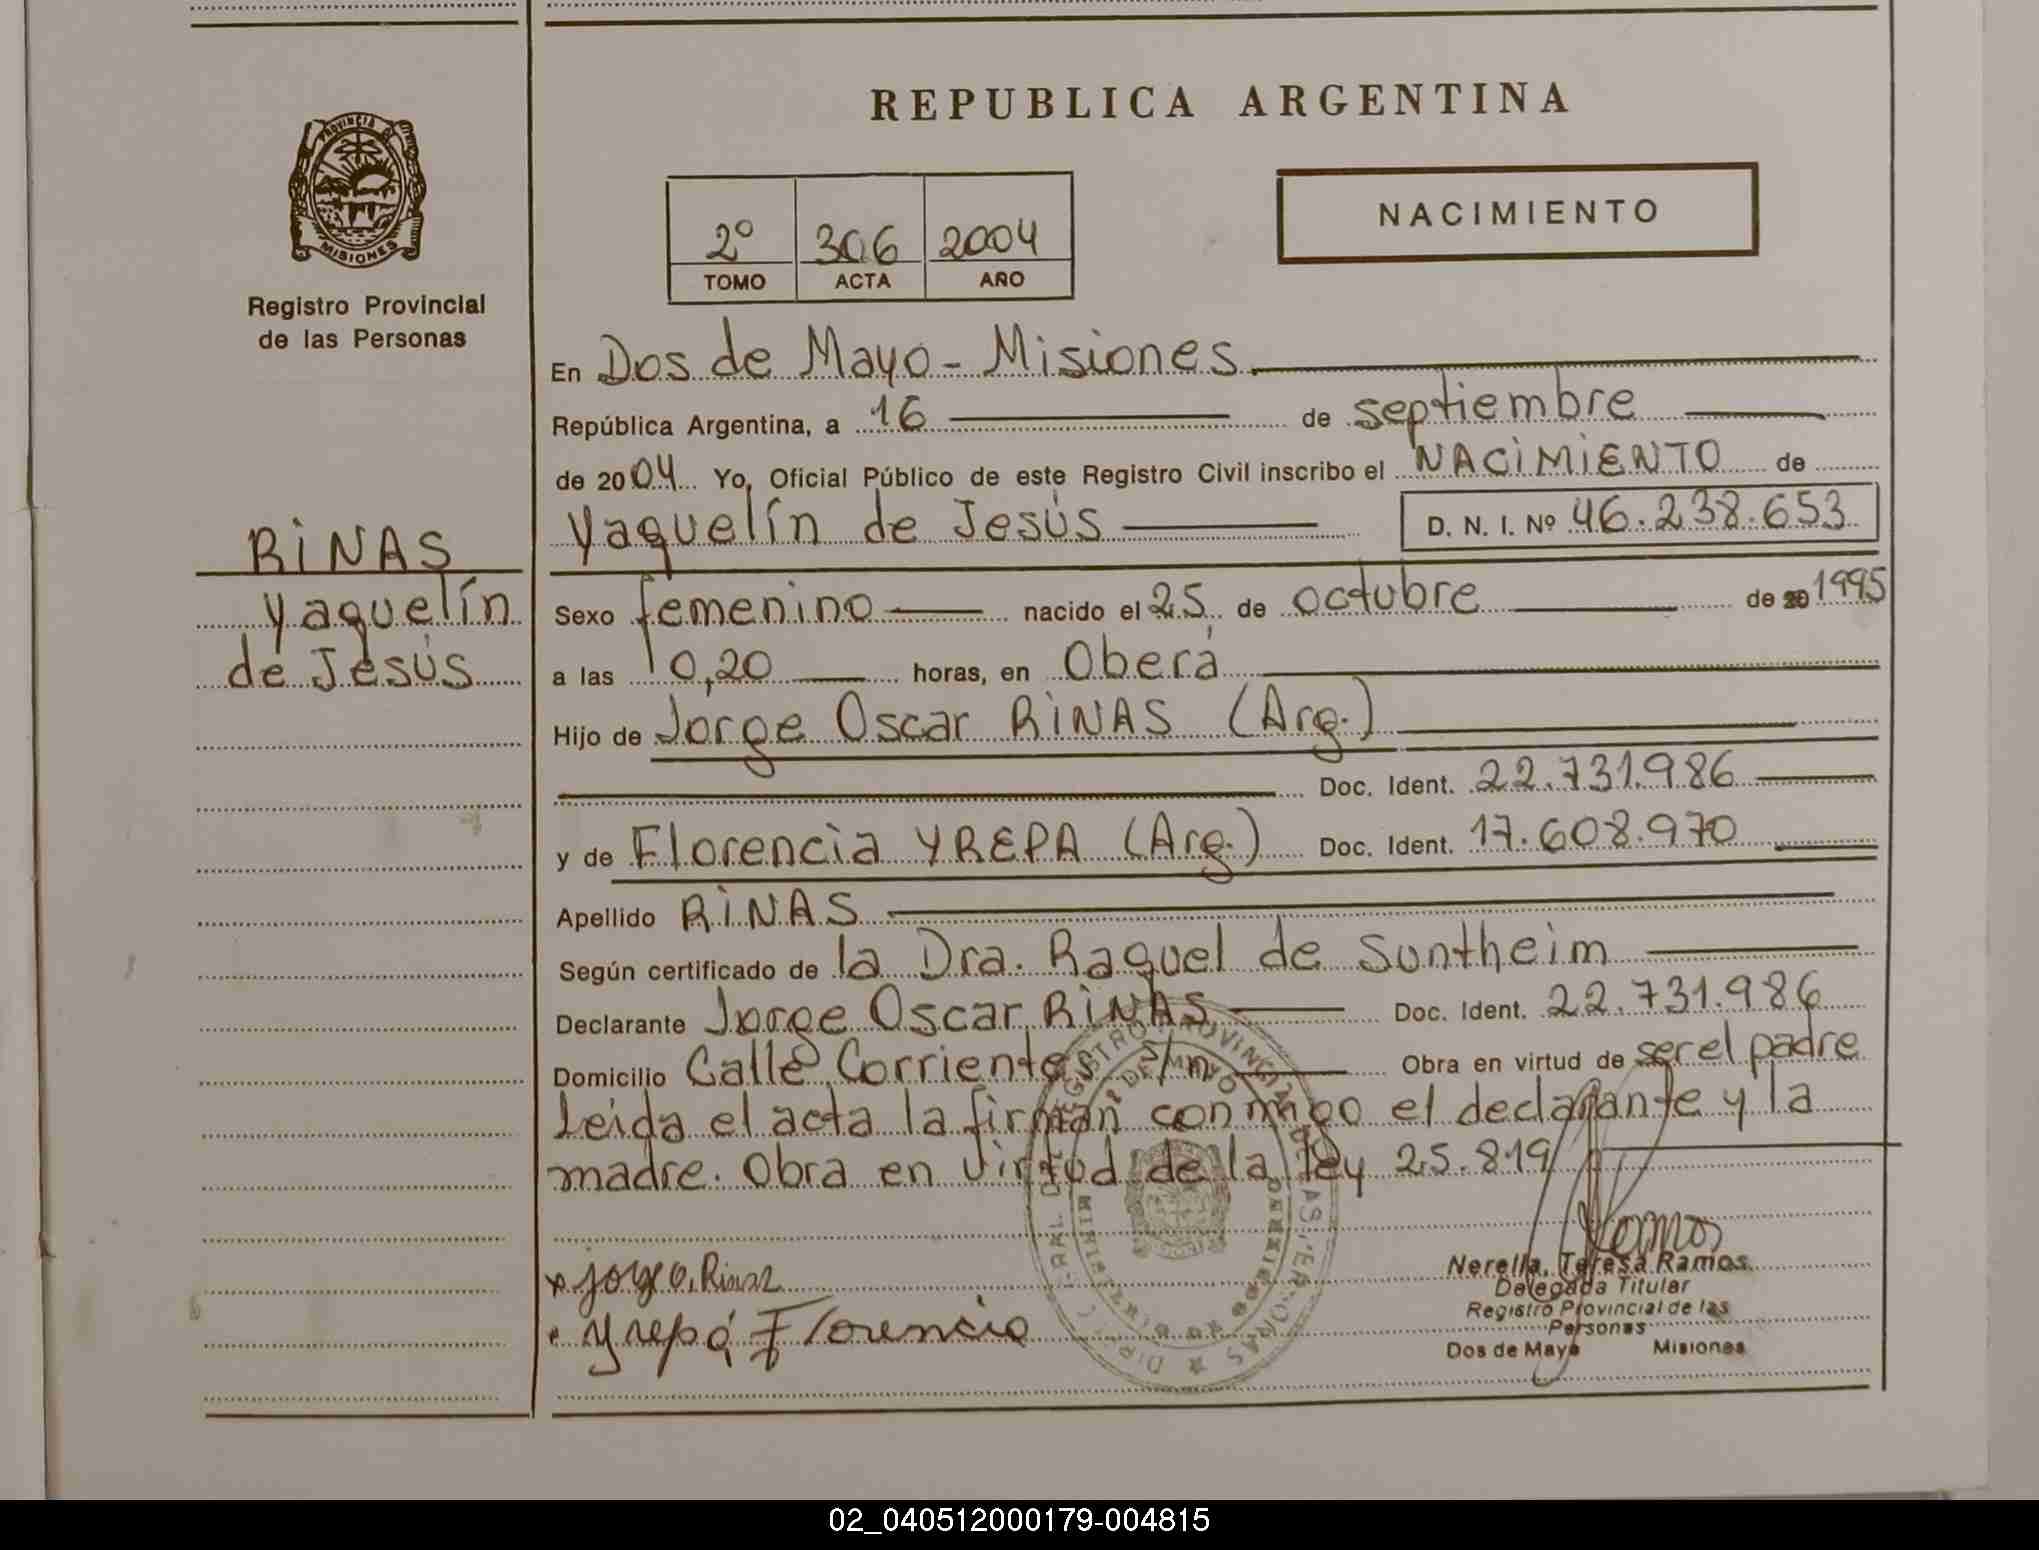 REPUBLICA ARGENTINA
PROVINCIA DE
MISIONES
Registro Provincial
de las Personas
NACIMIENTO
2º 306 2004
TOMO ACTA AÑO
En Dos de Mayo - Misiones
República Argentina, a 16 de septiembre
de 2004 Yo, Oficial Público de este Registro Civil inscribo el NACIMIENTO de
Yaquelín de Jesús D. N. I. Nº 46.238.653
RINAS
Yaquelín
de Jesús
Sexo femenino nacido el 25 de octubre de 20 1995
a las 10,20 horas, en Oberá
Hijo de Jorge Oscar RINAS (Arg.)
Doc. Ident. 22.731.986
y de Florencia YREPA (Arg.) Doc. Ident. 17.608.970
Apellido RINAS
Según certificado de la Dra. Raquel de Suntheim
Declarante Jorge Oscar RINAS Doc. Ident. 22.731.986
Domicilio Calle Corrientes s/n Obra en virtud de ser el padre
Leída el acta la firman conmigo el declarante y la
madre. Obra en virtud de la ley 25.819
Jorge O. Rinas
Yrepá Florencia
Ramos
Nerella, Teresa Ramos
Delegada Titular
Registro Provincial de las
Personas
Dos de Mayo Misiones
02_040512000179-004815